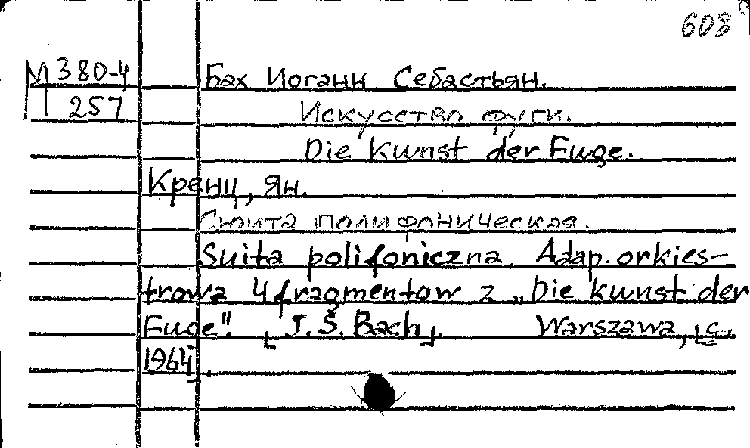 608
М 380-4
257
Бах Иоганн Себастьян.
Искусство фуги.
Die Kunst der Fuge.
Кренц, Ян.
Сюита полифоническая.
Suita polifoniczna. Adap. orkies-
trowa 4 fragmentow z „Die Kunst der
Fuge". [J. S. Bach]. Warszawa, [c.
1964].